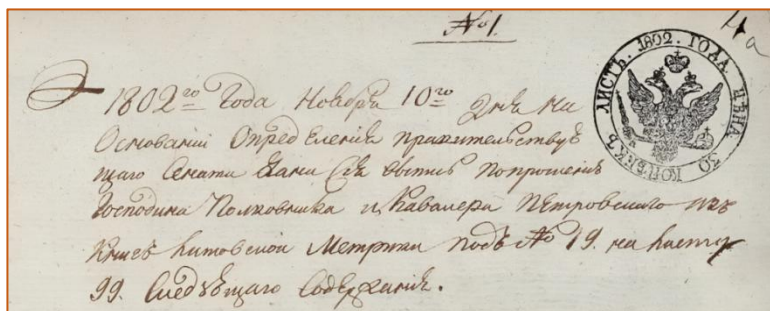 № 1.
4 а
ЛИСТЪ. 1802. ГОДА. ЦѢНА 20 КОПѢЕКЪ
1802го Года Ноября 10го Дня на
Основаніи Определенія правительствую
щаго Сената Дана Сія выпись попрошенію
Господина Полковника и Кавалера Петровскаго изъ
Книгъ Литовской Метрики подъ № 19. на листу
99. Следующаго Содержанія.